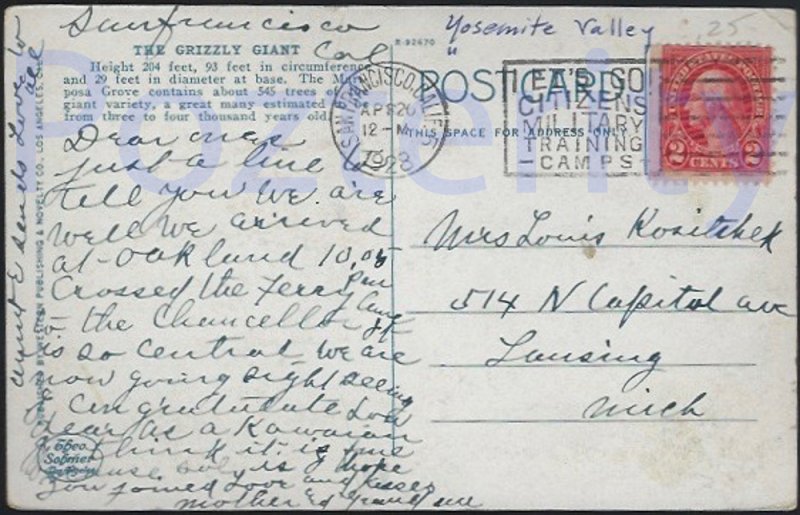 Sanfrancisco
Cal
THE GRIZZLY GIANT
Height 204 feet, 93 feet in circumference
and 29 feet in diameter at base. The Mari-
posa Grove contains about 545 trees of
giant variety, a great many estimated
from three to four thousand years old.
Dear
just a line to
tell you we are
well we arrived
at Oakland 10.05
Pm
Crossed the ferry
the Chancellor
is so central we are
now going sight seeing
Congratulate Lou
dear as a Kawaian
I think it is fine
is hope
you joined love and kisses
mother
sends love to
all
PUBLISHED BY WESTERN PUBLISHING & NOVELTY CO., LOS ANGELES, CAL.
Theo.
Sohmer
R-92670
Yosemite Valley
"
25
POSTCARD
THIS SPACE FOR ADDRESS ONLY
SAN FRANCISCO, CALIF.
APR 26
12-M
1923
LET'S GO!
CITIZENS
MILITARY
TRAINING
CAMPS
2 CENTS 2
Mrs Louis Kositchek
514 N Capitol ave
Lansing
Mich